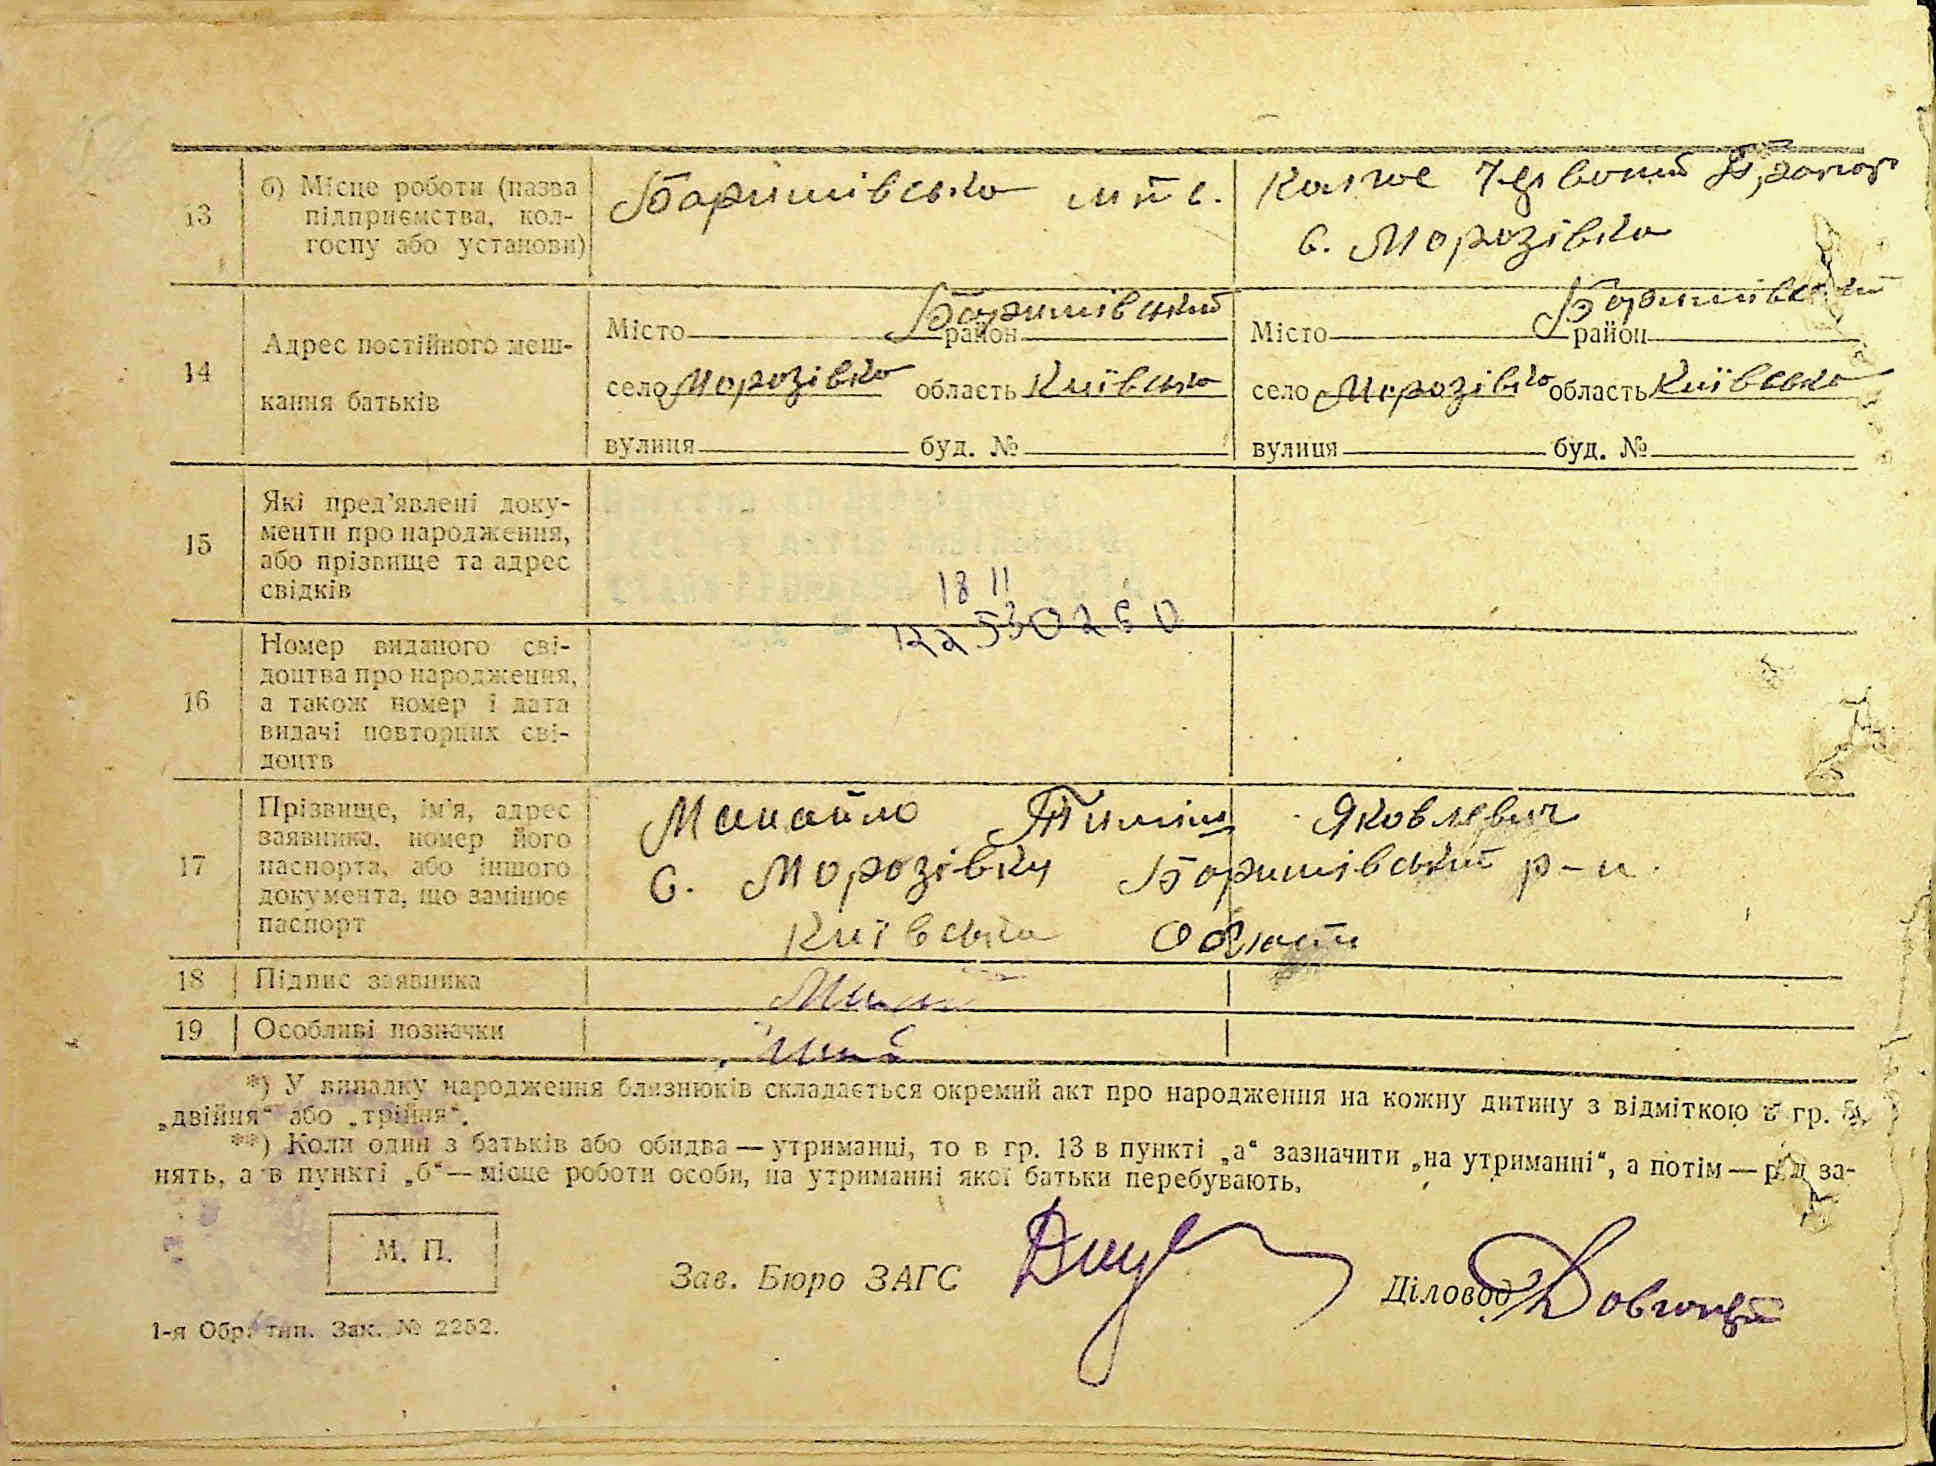 13
б) Місце роботи (назва
підприємства, кол-
госпу або установи)
Баришівська мтс.
Колгос Червоний Прапор
с. Морозівка
14
Адрес постійного меш-
кання батьків
Місто район Баришівський
село Морозівка область Київська
вулиця буд. №
Місто район Баришівський
село Морозівка область Київська
вулиця буд. №
15
Які пред'явлені доку-
менти про народження,
або прізвище та адрес
свідків
18 11
16
Номер виданого сві-
доцтва про народження,
а також номер і дата
видачі повторних сві-
доцтв
17
Прізвище, ім'я, адрес
заявника, номер його
паспорта, або іншого
документа, що замінює
паспорт
Манайло Тиміш Яковлевич
С. Морозівки Баришівський р-н.
Київська Области
18 Підпис заявника
19 Особливі позначки
*) У випадку народження близнюків складається окремий акт про народження на кожну дитину з відміткою в гр. 5,
„двійня“ або „трійня“.
**) Коли один з батьків або обидва — утриманці, то в гр. 13 в пункті „а“ зазначити „на утриманні“, а потім — рід за-
нять, а в пункті „б“ — місце роботи особи, на утриманні якої батьки перебувають.
М. П.
Зав. Бюро ЗАГС
Діловод
1-я Обр. тип. Зак. № 2252.